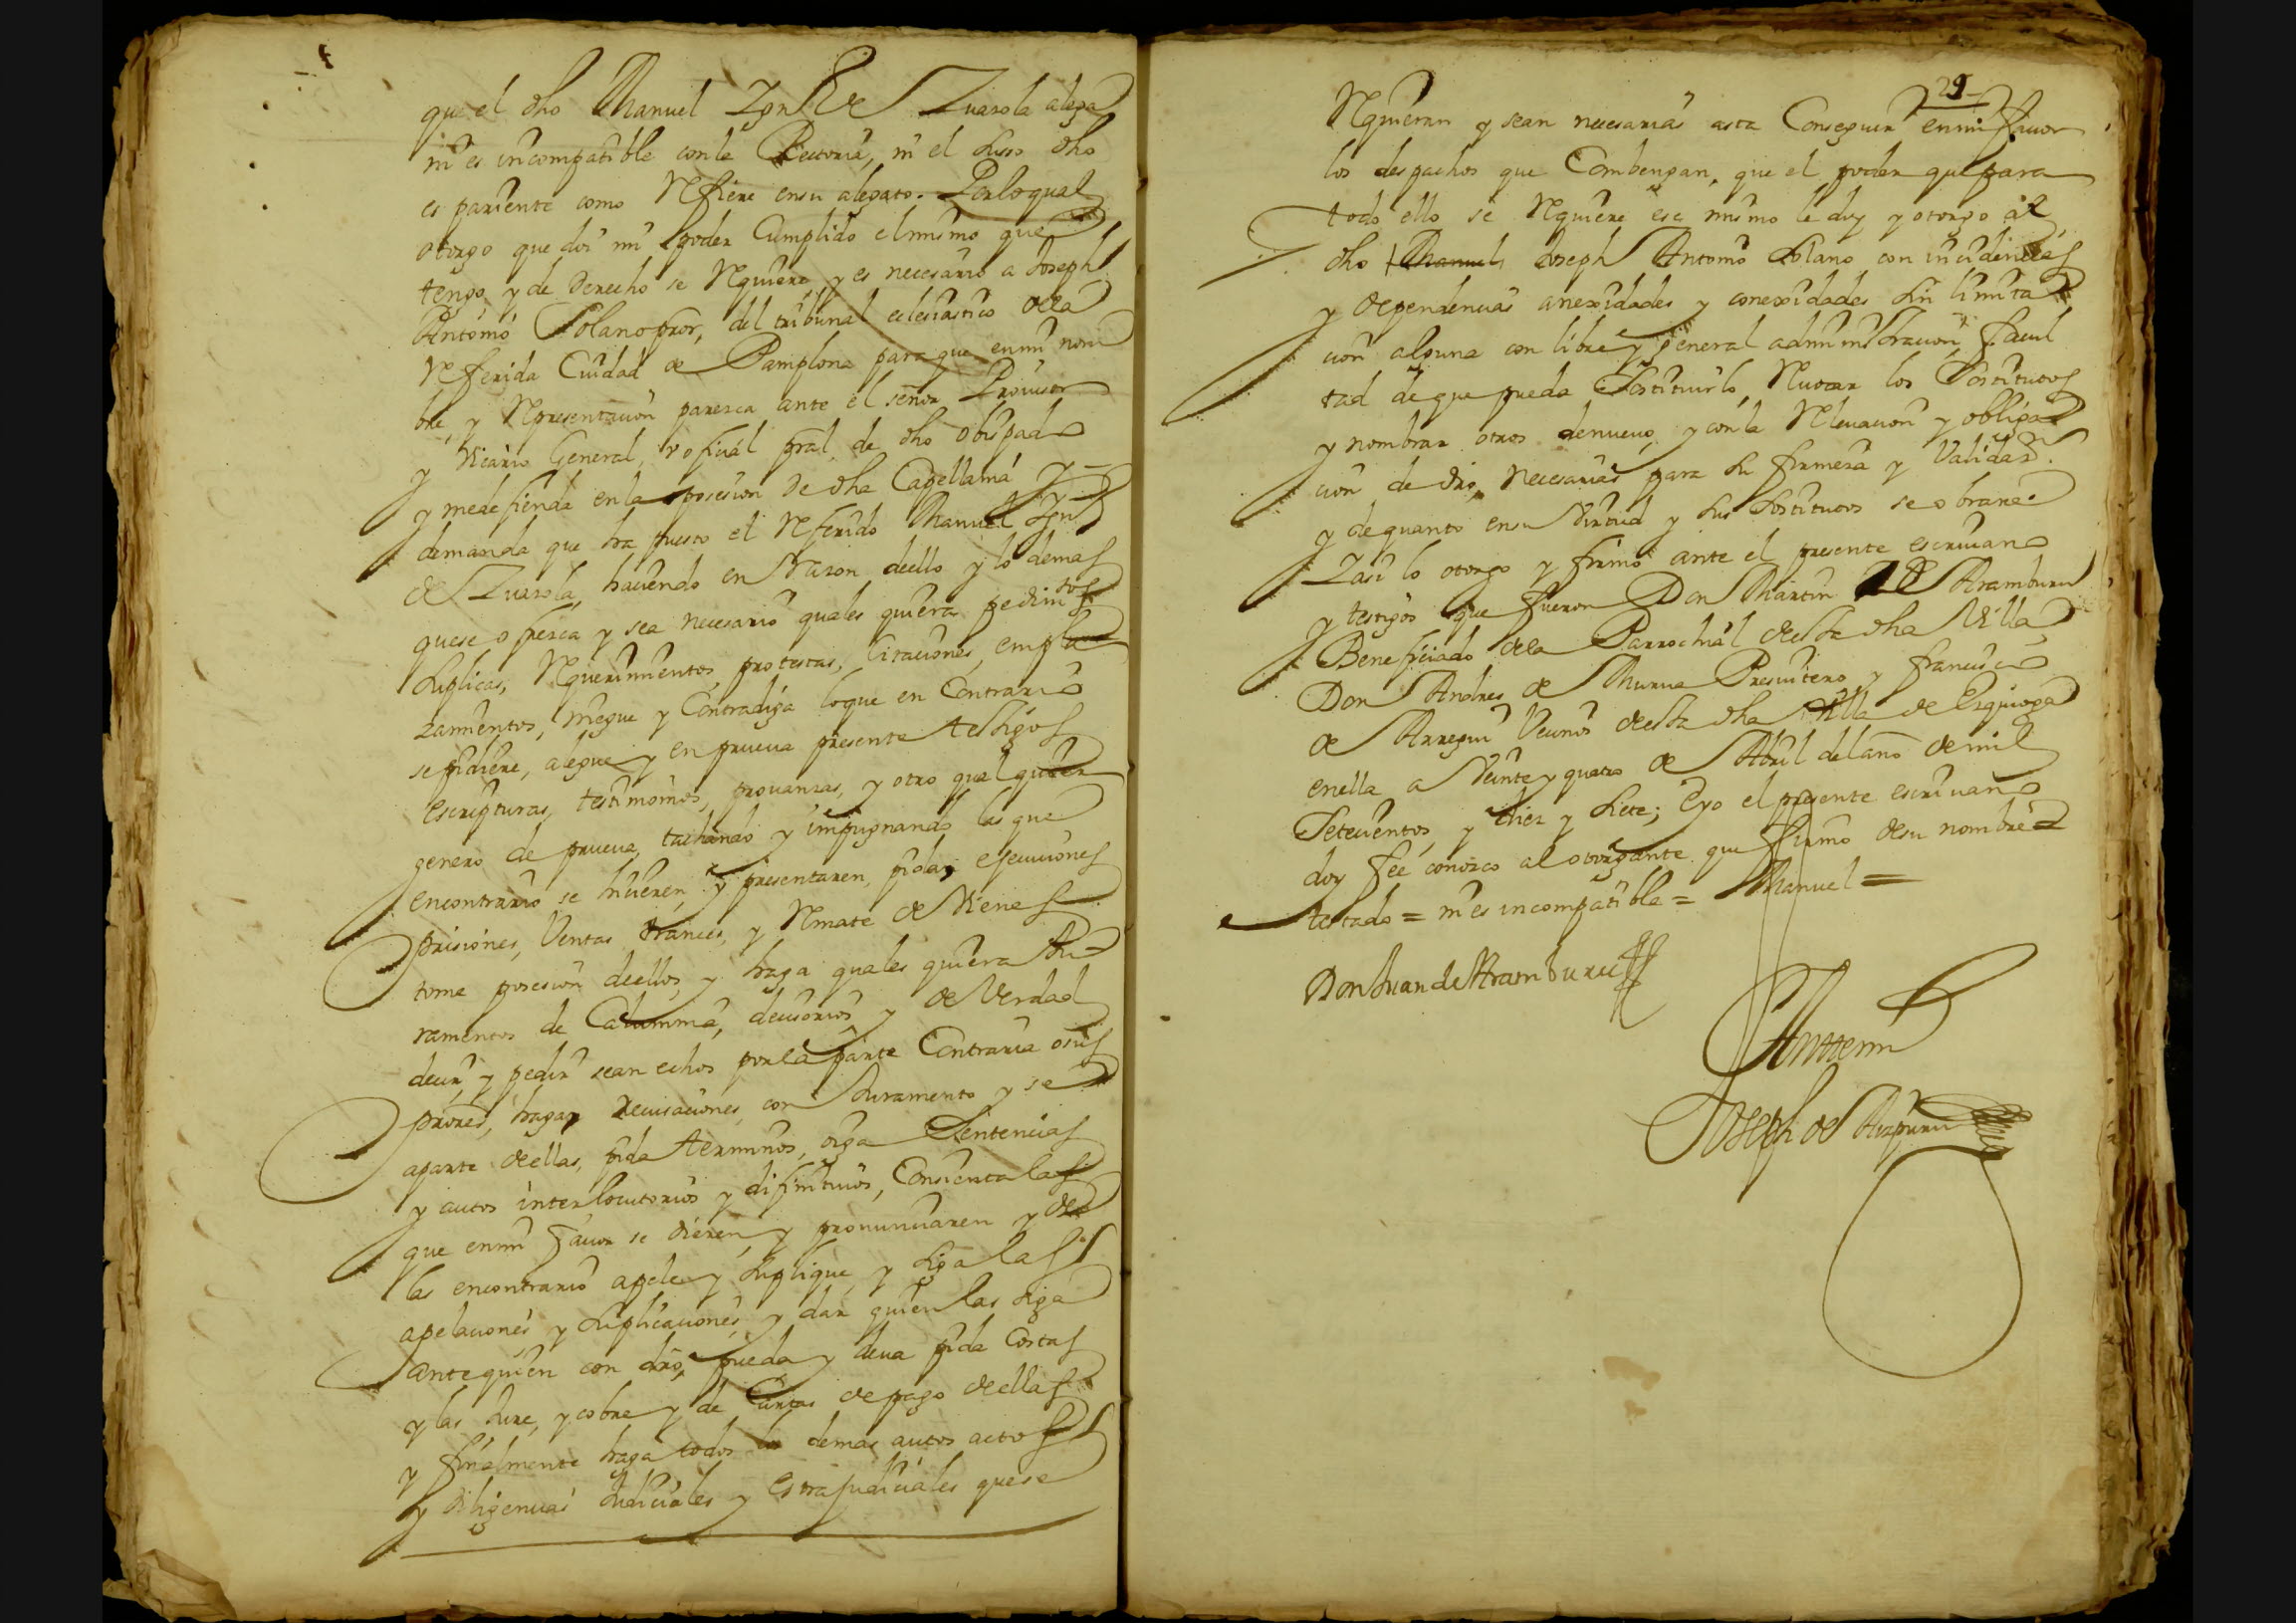 que el dho Manuel Ygn.º de Zuasola alega
ni es incompatible con la Rectoria, ni el suso dho
es pariente como Refiere en su alegato. Por lo qual
otorgo que doi mi poder Cumplido el mismo que
tengo y de Derecho se Requiere y es necesario a Joseph
Antonio Solano pror, del tribunal eclesiastico de la
Referida Ciudad de Pamplona para que en mi nom
bre, y Representacion paresca ante el señor Provisor
y Vicario General, y ofiçial pral, de dho obispado
y me defienda en la posesion de dha Capellania y
demanda que ha puesto el Referido Manuel Ygn.º
de Zuasola, haciendo en Razon de ello y lo demas
que se ofresca y sea necesario quales quiera pedimtos
suplicas, Requerimientos, protestas, Citaciones, empla
zamientos, niegue y Contradiga lo que en Contrario
se pidiere, alegue y en prueua presente testigos
escripturas, testimonios, prouanzas, y otro qual quier
genero de prueua, tachando y impugnando las que
en contrario se hicieren, y presentaren, pida, ejecuciones
prisiones, Ventas trances, y Remate de Vienes
tome posesion de ellos, y haga quales quiera Ju
ramentos de Calumnia, decisorios y de Verdad
decir, y pedir sean echos por la parte Contraria o sus
prores, haga, Recusaciones con Juramento y se
aparte de ellas, pida terminos, oiga Sentencias
y autos interlocutorios y difinitiuos, Consienta las
que en mi fauor se dieren, y pronunciaren y de
las en contrario apele y suplique, y siga las
apelaciones y suplicaciones, y dar quien las siga
ante quien con dro, pueda y deua pida Costas
y las Jure, y cobre y de Cartas de pago de ellas
y finalmente haga todos los demas autos actos
y diligencias Judiciales y estrajudiciales que se
29
Requieran y sean necesarias asta Conseguir en mi fauor
los despachos que Combengan, que el poder que para
todo ello se Requiere ese mismo le doy y otorgo al
dho Manuel Joseph Antonio Solano con incidencias
y dependencias anexidades y conexidades sin limita
cion alguna con libre y general administracion, facul
tad de que pueda Sostituirlo, Reuocar los Sostitutos
y nombrar otros de nueuo, y con la Releuacion y obliga
cion de dro, necesarias para su firmeza y Validaz.
y de quanto en su Virtud y sus Sostitutos se obrare.
Y asi lo otorgo y firmo ante el presente escriuano
y testigos que fueron Don Martin de Aramburu
Beneficiado de la Parrochial de esta dha Villa
Don Andres de Murua Presuitero y Francisco
de Arregui Vecinos de esta dha Villa de Ezquioga
en ella a Veinte y quatro de Abril del año de mil
Setecientos, y diez y siete; E yo el presente escriuano
doy fee conozco al otorgante que firmo de su nombre =
testado = ni es incompatible = Manuel =
Don Juan de Aramburu
Antemi
Joseph de Aizpuru